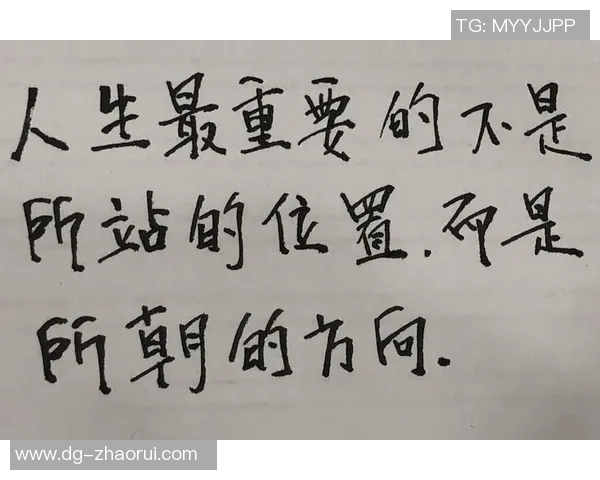 TG: MYYJJPP
人生最重要的不是
所站的位置.而是
所朝的方向.
www.dg-zhaorui.com